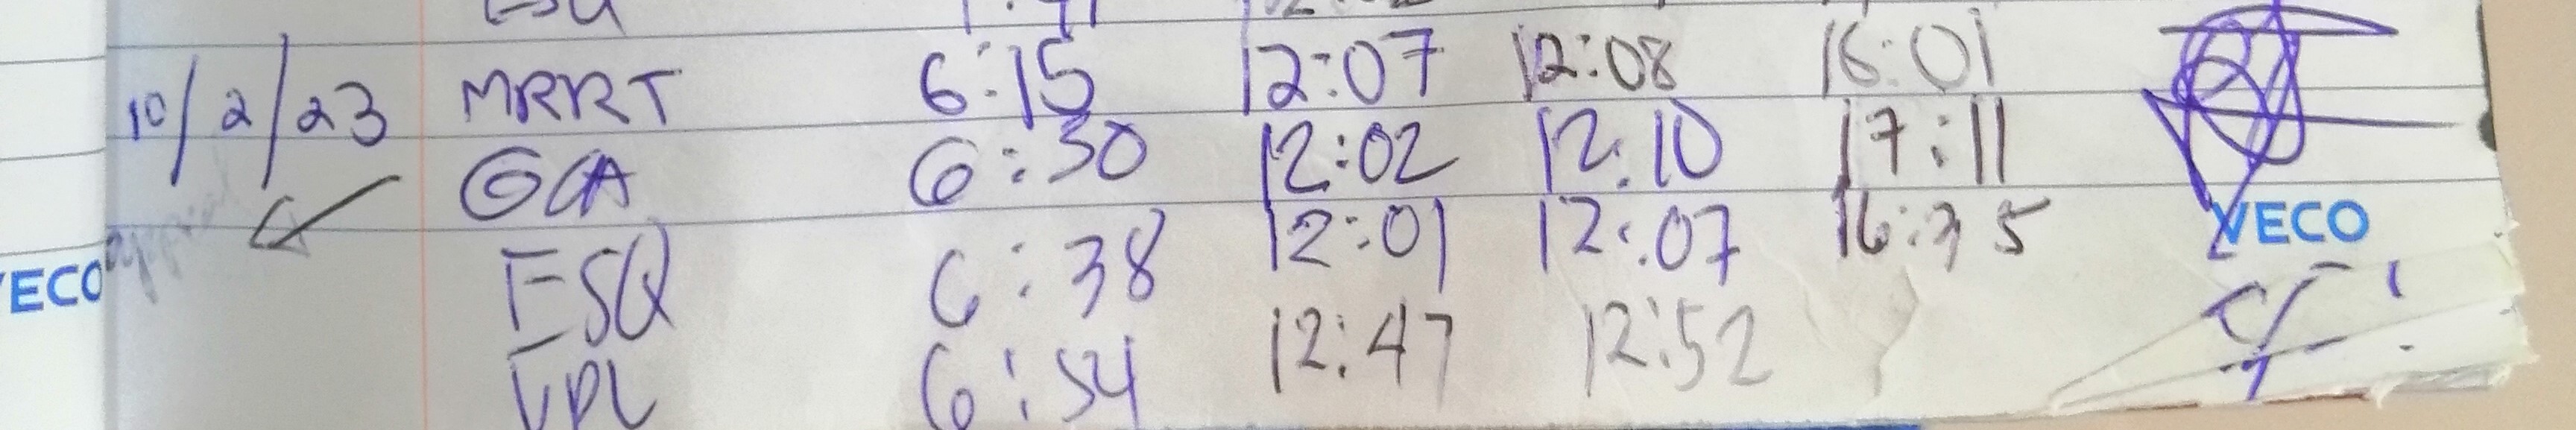 MRRT 6:15 12:07 12:08 16:01
10/2/23
GCA 6:30 12:02 12:10 17:11
ESQ 6:38 12:01 12:07 16:35
VECO
VECO
6:54 12:47 12:52